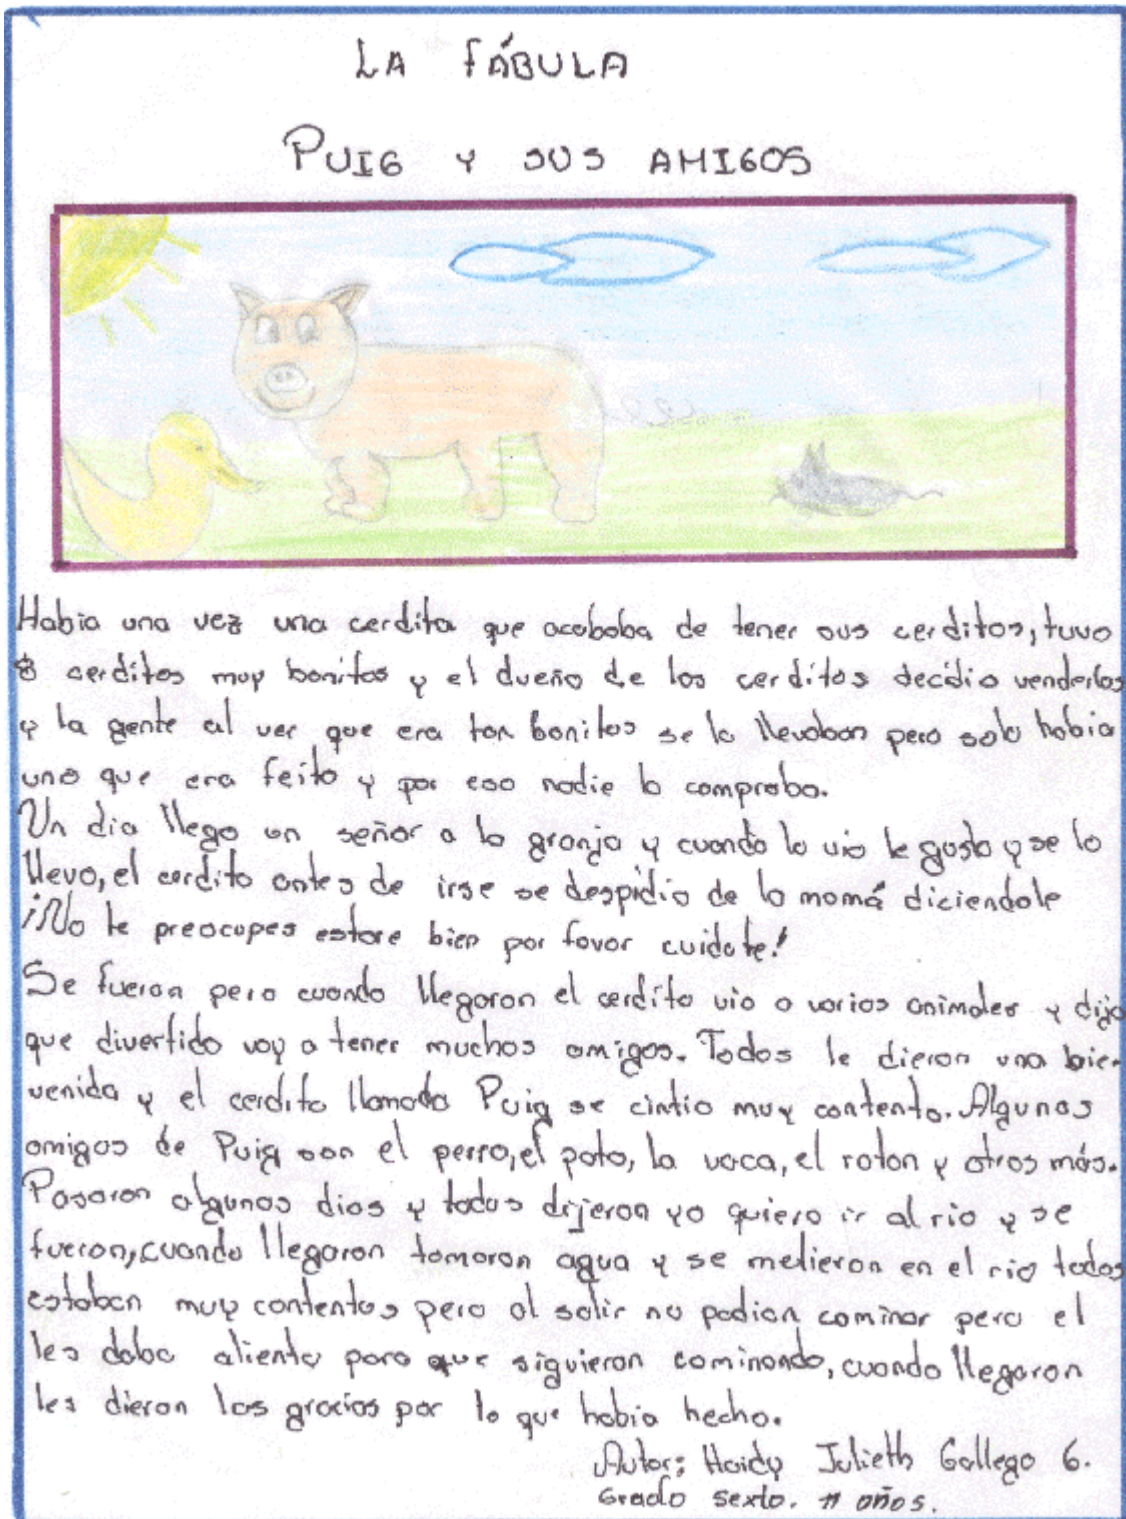 LA FÁBULA
PUIG Y SUS AMIGOS
Habia una vez una cerdita que acababa de tener sus cerditos, tuvo
8 cerditos muy bonitos y el dueño de los cerditos decidio venderlos
y la gente al ver que era tan bonitos se lo llevaban pero solo habia
uno que era feito y por eso nadie lo comprabo.
Un dia llego un señor a la granja y cuando lo vio le gusto y se lo
llevo, el cerdito antes de irse se despidio de la mamá diciendole
¡No te preocupes estare bien por favor cuidate!
Se fueron pero cuando llegaron el cerdito vio a varios animales y dijo
que divertido voy a tener muchos amigos. Todos le dieron una bie-
venida y el cerdito llamado Puig se cintio muy contento. Algunos
amigos de Puig son el perro, el pato, la vaca, el raton y otros más.
Pasaron algunos dias y todos dijeron yo quiero ir al rio y se
fueron, cuando llegaron tomaron agua y se metieron en el rio todos
estaban muy contentos pero al salir no podian caminar pero el
les daba aliento para que siguieran caminando, cuando llegaron
les dieron las gracias por lo que habia hecho.
Autor: Haidy Julieth Gallego G.
Grado sexto. 11 años.